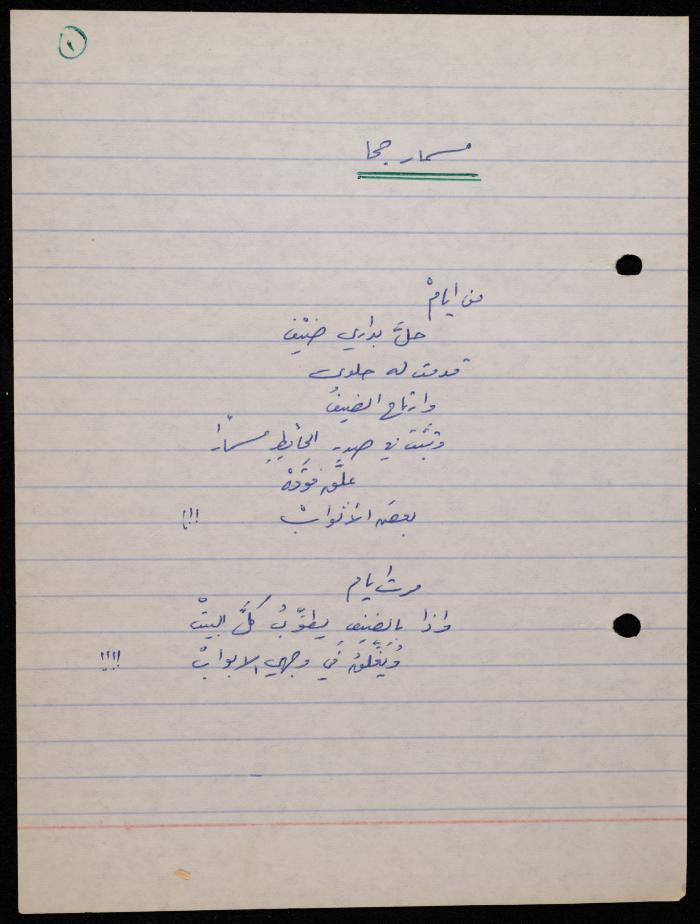 ١
مسمار جحا
من ايامْ
حلَّ بداري ضيْف
قدمت له حلوى
وارتاح الضيفُ
وثبَّت في صدر الحائِطِ مسمارًا
علَّق فوقَهْ
بعضَ الأثوابْ !!!
مرت ايام
واذا بالضيفِ يطوِّبُ كلَّ البيتْ
ويُغلِّقُ في وجهي الابوابْ !!!!